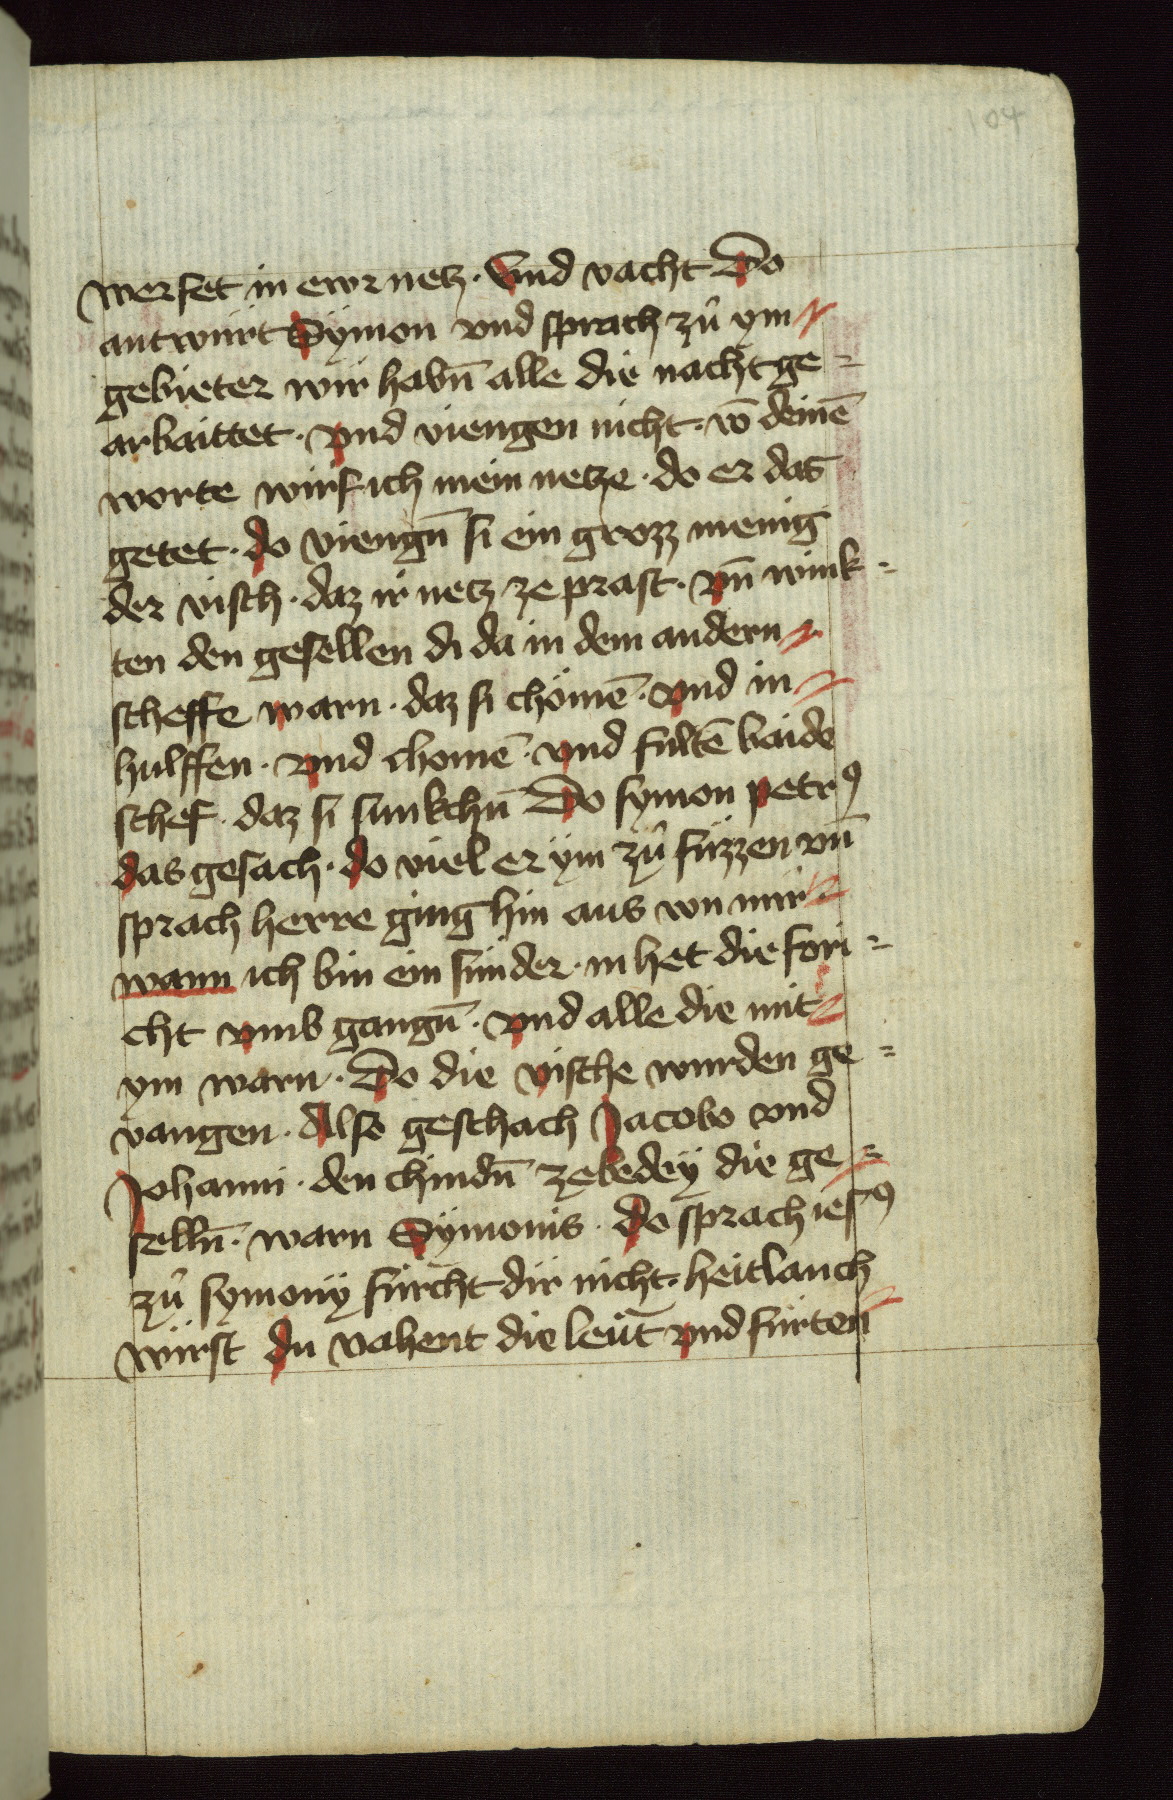 104
werfet in ewr netz · Und vacht Do
antwürt Symon vnd sprach zů ym
gebieter wir habn̄ alle die nacht ge=
arbaittet · vnd viengen nicht · vō deinē
worte würf ich mein netze · do er das
getet · do viengn̄ si ein grozz menig
der visch · daz ir netz ze prast · vn̄ wink=
ten den gesellen di da in dem andern
scheffe warn · daz si chömē · vnd in
hulffen · vnd chomē · vnd fultē baide
schef · daz si sunkchn̄ Do symon petrꝰ
das gesach · do viel er ÿm zů füzzen vn̄
sprach herre ging hin aus von mir
wann ich bin ein sünder · in het die fori=
cht vmb gangn̄ · vnd alle die mit
ym warn · Do die vische wurden ge=
vangen · Also geschach Jacobo vnd
Johanni · den chindn̄ zebedeÿ die ge=
selln̄ · warn Sÿmonis · do sprach iesꝰ
zů symonÿ fürcht dir nicht · heitlanch
würst du vahent die leüt vnd fürten